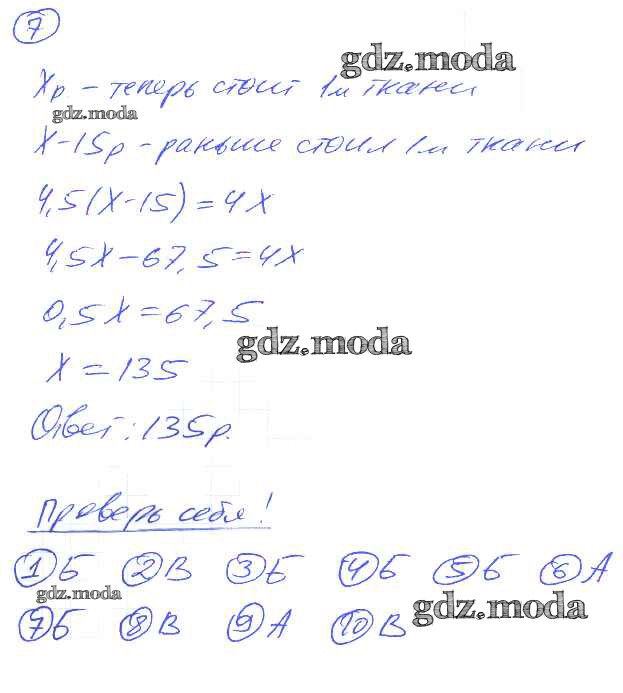 7
gdz.moda
Xр – теперь стоит 1м ткани
gdz.moda
X–15р – раньше стоил 1м ткани
4,5(X–15)=4X
4,5X–67,5=4X
0,5X=67,5
gdz.moda
X=135
Ответ: 135р.
Проверь себя!
1 Б 2 В 3 Б 4 Б 5 Б 6 А
gdz.moda gdz.moda
7 Б 8 В 9 А 10 В